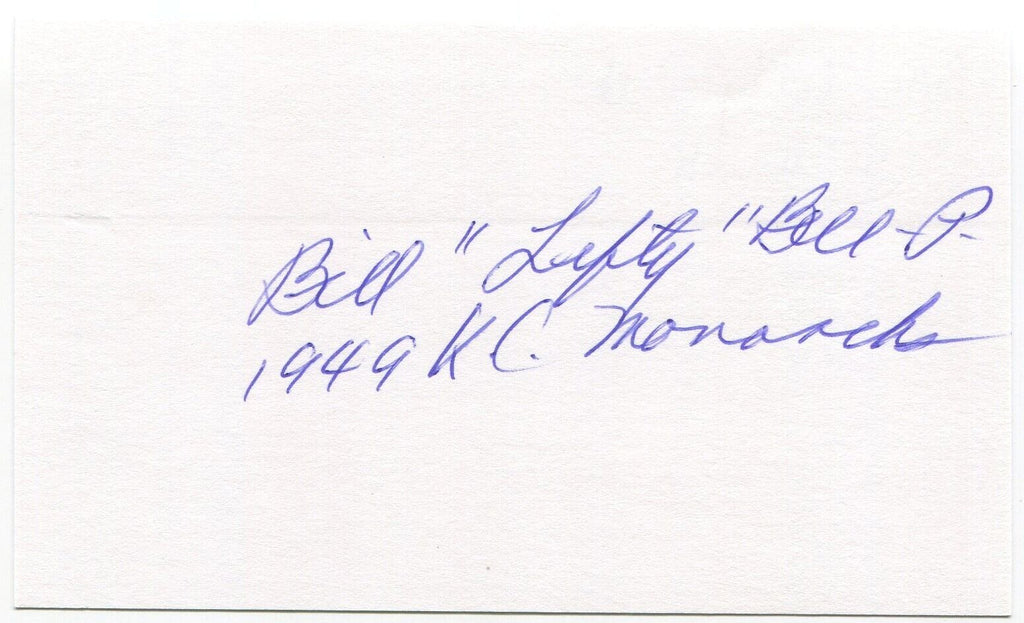 Bill "Lefty" Bell - P.
1949 K C. Monarchs